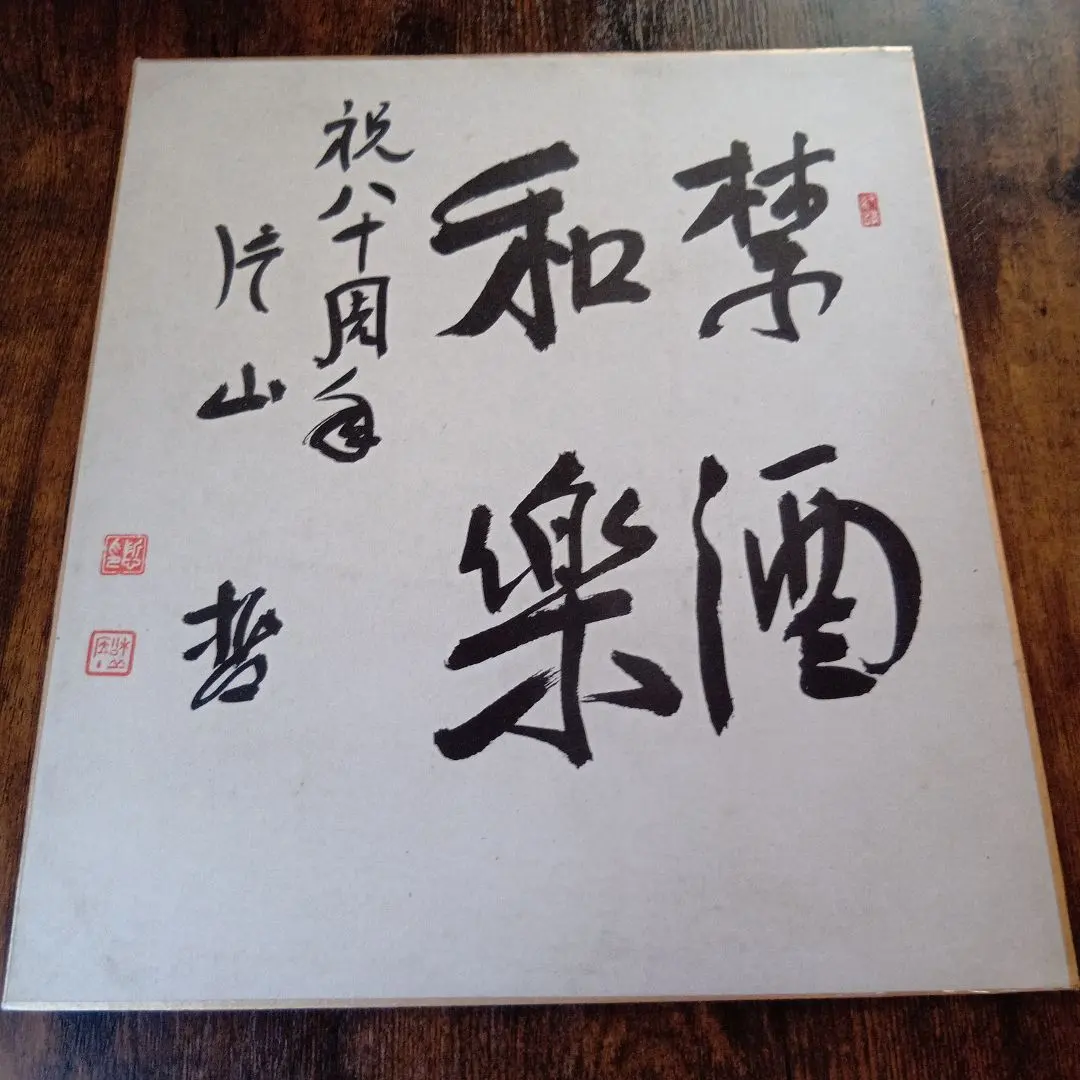 禁酒
和樂
祝八十周年
片山哲